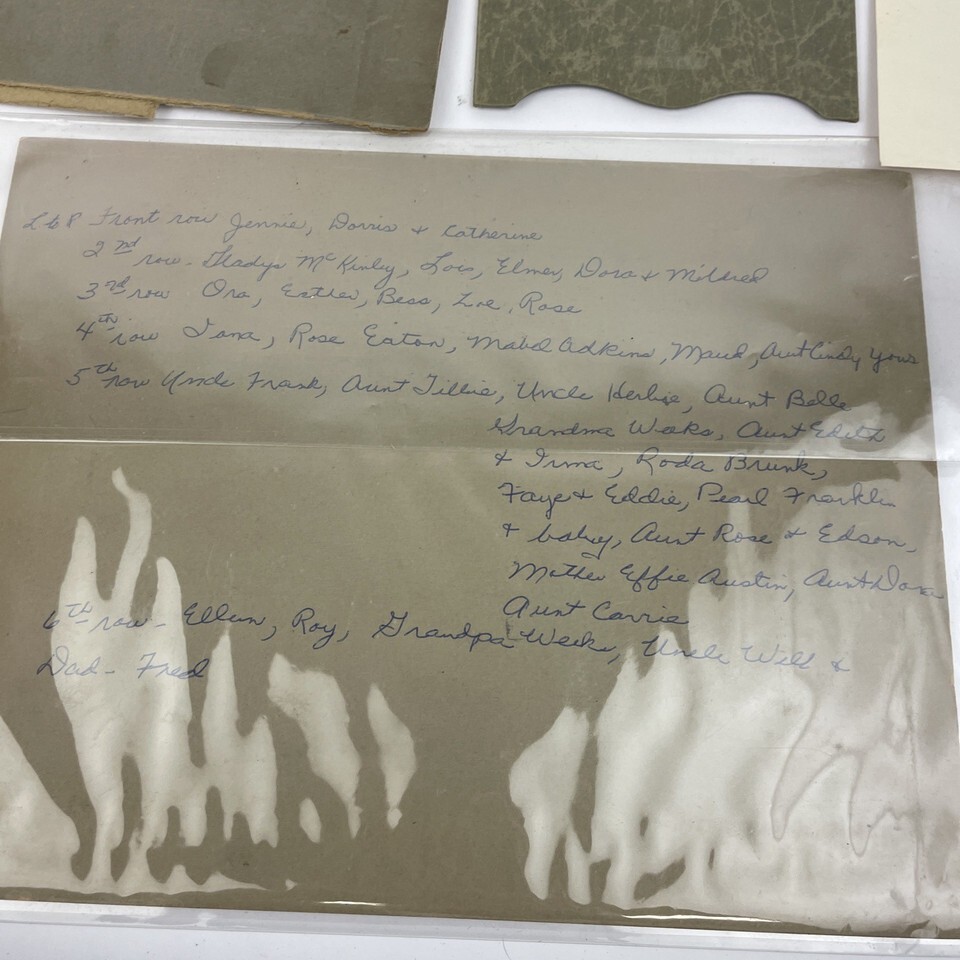 L to R Front row Jennie, Dorris & Catherine
2nd row - Gladys McKinly, Lois, Elmer, Dora & Mildred
3rd row Ora, Esther, Bess, Zoe, Rose
4th row Iona, Rose Eaton, Mabel Adkins, Maud, Aunt Cindy Yours
5th row Uncle Frank, Aunt Tillie, Uncle Herbie, Aunt Belle
Grandma Weeks, Aunt Edith
& Irma, Roda Brunk,
Faye & Eddie, Pearl Franklin
& baby, Aunt Rose & Edson,
Mother Effie Austin, Aunt Dora
Aunt Carrie
6th row - Ellen, Roy, Grandpa Weeks, Uncle Will &
Dad - Fred